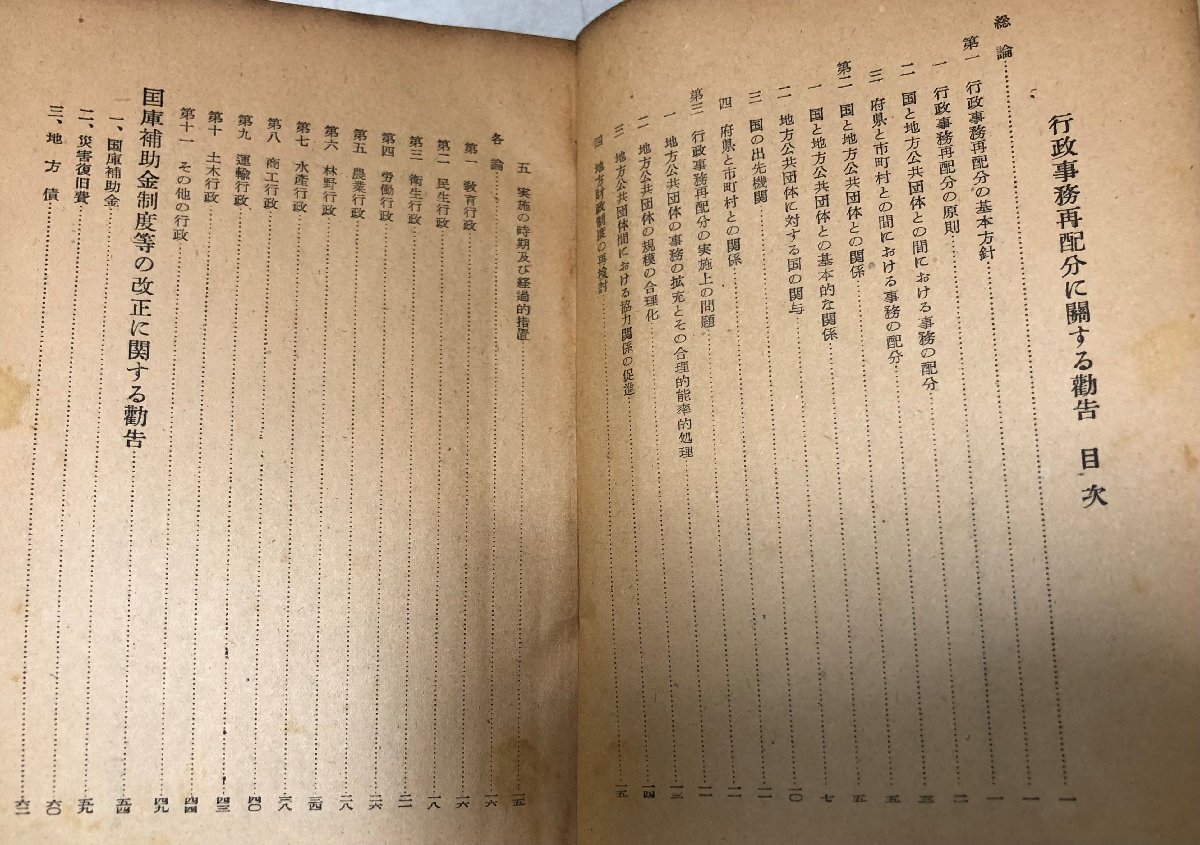 行政事務再配分に關する勸告　目次
総論……一
第一　行政事務再配分の基本方針……一
一　行政事務再配分の原則……一
二　国と地方公共団体との間における事務の配分……二
三　府県と市町村との間における事務の配分……三
第二　国と地方公共団体との関係……五
一　国と地方公共団体との基本的な関係……五
二　地方公共団体に対する国の関与……七
三　国の出先機関……一〇
四　府県と市町村との関係……一一
第三　行政事務再配分の実施上の問題……一一
一　地方公共団体の事務の拡充とその合理的能率的処理……一一
二　地方公共団体の規模の合理化……一三
三　地方公共団体間における協力関係の促進……一四
四　地方財政制度の再検討……一五
五　実施の時期及び経過的措置……一五
各論……一六
第一　教育行政……一六
第二　民生行政……一八
第三　衛生行政……二一
第四　労働行政……二六
第五　農業行政……二八
第六　林野行政……三四
第七　水産行政……三八
第八　商工行政……四〇
第九　運輸行政……四三
第十　土木行政……四四
第十一　その他の行政……四九
国庫補助金制度等の改正に関する勸告……五四
一、国庫補助金……五九
二、災害復旧費……六〇
三、地方債……六二